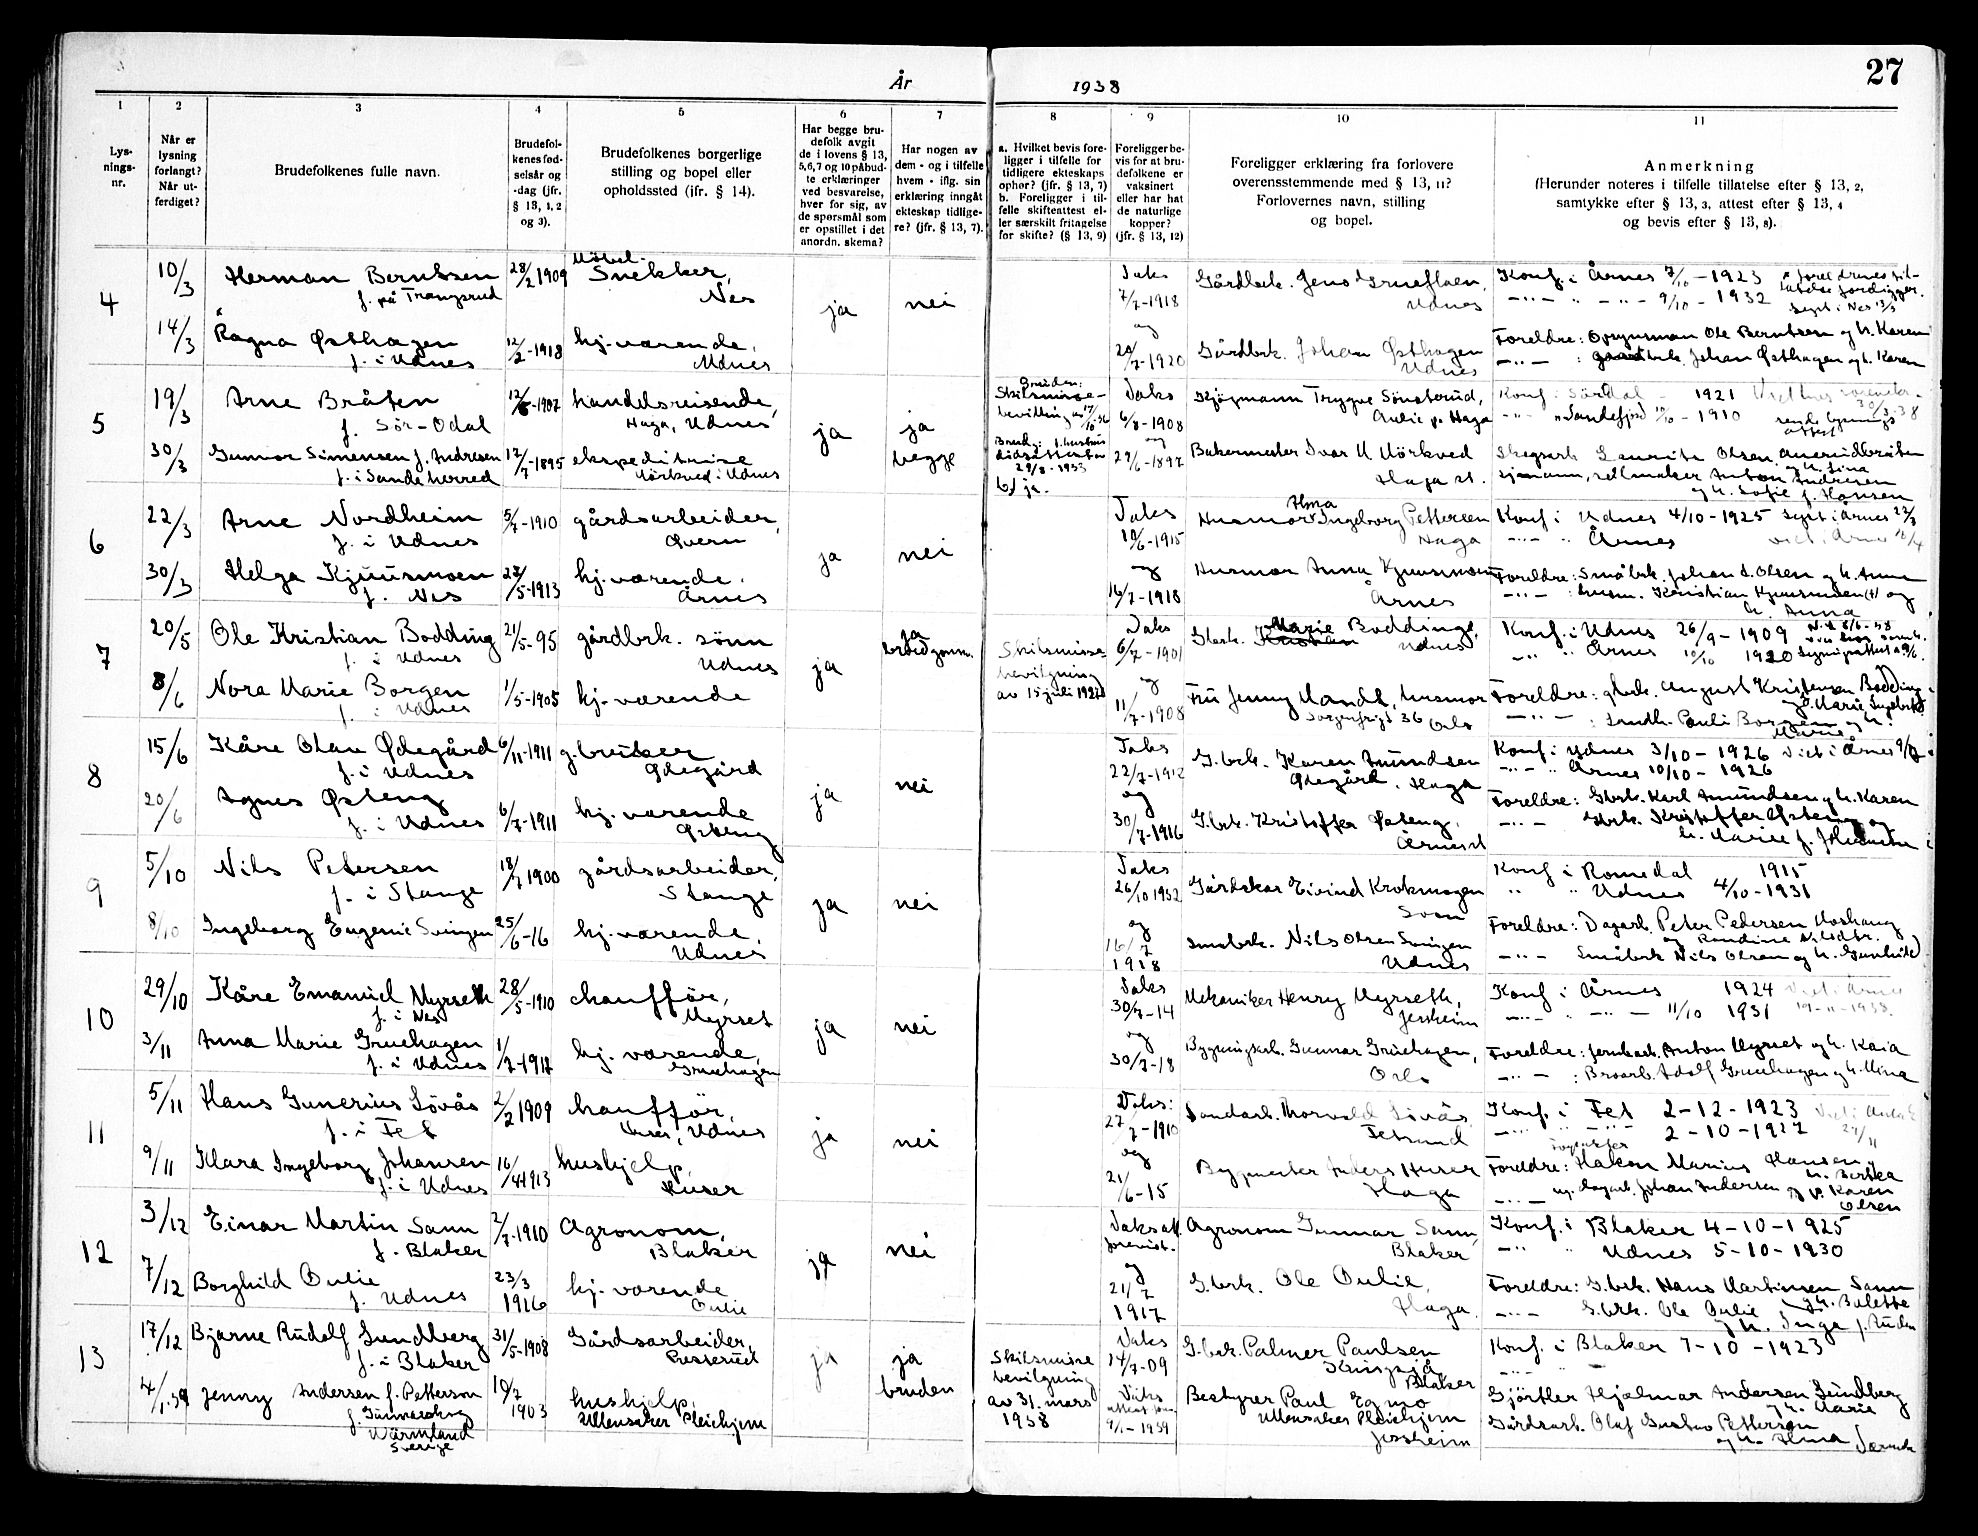 27
År 1938
1
2
3
4
5
6
7
8
9
10
11
Lys-
nings-
nr.
Når er
lysning
forlangt?
Når ut-
ferdiget?
Brudefolkenes fulle navn.
Brudefol-
kenes fød-
selsår og
-dag (jfr.
§ 13, 1, 2
og 3).
Brudefolkenes borgerlige
stilling og bopel eller
opholdssted (jfr. § 14).
Har begge bru-
defolk avgit
de i lovens § 13,
5,6,7 og 10 påbud-
te erklæringer
ved besvarelse,
hver for sig, av
de spørsmål som
er opstillet i det
anordn. skema?
Har nogen av
dem - og i tilfelle
hvem - iflg. sin
erklæring inngåt
ekteskap tidlige-
re? (jfr. § 13, 7).
a. Hvilket bevis fore-
ligger i tilfelle for
tidligere ekteskaps
ophør? (jfr. § 13, 7)
b. Foreligger i til-
felle skifteattest el-
ler særskilt fritagelse
for skifte? (§ 13, 9)
Foreligger be-
vis for at bru-
defolkene er
vaksinert
eller har hat
de naturlige
kopper?
(jfr. § 13, 12)
Foreligger erklæring fra forlovere
overensstemmende med § 13, 11?
Forlovernes navn, stilling
og bopel.
Anmerkning
(Herunder noteres i tilfelle tillatelse efter § 13, 2,
samtykke efter § 13, 3, attest efter § 13, 4
og bevis efter § 13, 8).
4
10/3 Herman Berntsen 28/2 1909 Møbel-
Snekker,
Nes
ja nei
Vaks
7/7-1918
Konf. i Årnes 7/10-1923
9/10-1932
14/3 Ragna Østhagen 12/2-1918 hj. værende,
f. i Udnes
Udnes
og
20/7-1920
Gårdbrk. Johan Østhagen
Udnes
Foreldre: Ole Berntsen og h. Karen
Johan Østhagen og h. Karen
5
19/3 Arne Bråten 12/8-1907 handelsreisende,
f. Sør-Odal
Haga, Udnes
ja ja
begge
Bruden:
Skilsmisse-
bevilling
Vaks
6/8-1908
Trygve Sønsterud,
Aulie p. Haga
Konf. i Sørodal 1921
" Sandefjord 1910
30/3 Gunvor Simensen f. Andresen 17/7-1895 ekspeditrise
f. i Sandeherred
Mörkved i Udnes
29/8-1933
b) ja.
og
29/6-1897
Bakermester Ivar M Mörkved
Haga st.
Laurits Olsen
og h. Lina
Anton Andresen
og h. Sofie f. Hansen
6
22/3 Arne Nordheim 5/7-1910 gårdsarbeider,
f. i Udnes
ja nei
Vaks
10/6-1915
Husmor Alma Ingeborg Pettersen
Haga
Konf. i Udnes 4/10-1925
" Årnes
30/3 Helga Kjuusmoen 28/5-1913 hj. værende.
f. Nes
Årnes
og
16/7-1918
Husmor Anna Kjuusmoen
Årnes
Foreldre: Småbrk. Johan L. Olsen og h. Anna
h. Anna
7
20/5 Ole Kristian Bodding 21/5-95 gårdbrk. sønn
f. i Udnes
Udnes
ja ja
brudgomm.
Skilsmisse-
bevilgning
av 15 juli 1926
Vaks
6/7-1901
Gbrk. Marie Bodding,
Udnes
Konf. i Udnes 26/9-1909
" Årnes 10/10 1920
8/6 Nora Marie Borgen 1/5-1905 hj. værende
f. i Udnes
og
11/7-1908
Fru Jenny Mandt, husmor
Sorgenfrigt 36 Oslo
Foreldre: gbrk. August Kristensen Bodding
og Marie Ingeborg
Pauli Borgen og h.
Marie
8
15/6 Kåre Olav Ødegård 6/11-1911 g. bruker
f. i Udnes
Ødegård
ja nei
Vaks
22/7-1912
G. brk. Karen Amundsen
Ødegård, Haga
Konf. i Udnes 3/10-1926 Viet i Årnes
" Årnes 10/10-1926
20/6 Agnes Østeng 6/7-1911 hj. værende
f. i Udnes
Østeng
og
30/7-1916
G. brk. Kristoffer Østeng,
Årnes st
Foreldre: Gbrk. Karl Amundsen og h. Karen
Gbrk. Kristoffer Østeng og
h. Marie f. Johansen
9
5/10 Nils Petersen 18/7 1900 gårdsarbeider,
f. i Stange
Stange
ja nei
Vaks
26/10 1932
Gårdskar Eivind Krokmogen
Svan
Konf i Romedal 1915
" " Udnes 4/10-1931
8/10 Ingeborg Eugenie Svingen 25/6-16 hj. værende,
Udnes
og
16/7
1918
Småbrk. Nils Olsen Svingen
Udnes
Foreldre: Dagarb. Peter Pedersen Moshaug
og Randine Nilsdtr.
Småbrk Nils Olsen og h. Gunhild
10
29/10 Kåre Emanuel Myrseth 28/5-1910 chaufför,
f. i Nes
Myrset
ja nei
Vaks
30/7-14
Mekaniker Henry Myrseth,
Jessheim
Konf i Årnes 1924 Viet i Årnes
11/10 1931 19-11-1938.
3/11 Anna Marie Gruehagen 1/7-1912 hj. værende,
f. i Udnes
Gruehagen
og
30/7-18
Bygningsarb. Gunnar Gruehagen,
Oslo
Foreldre: Jernbarb. Anton Myrset og h. Kaia
: Adolf Gruehagen og h. Mina
11
5/11 Hans Gunerius Lövås 2/2 1909 chaufför,
f. i Fet
Huser, Udnes
ja nei
Vaks:
27/7-1910
Thorvald Lövås,
Fetsund
Konf. i Fet 2-12-1923
2-10-1927
9/11 Klara Ingeborg Johansen 16/4 1913 hushjelp,
f. i Udnes
Huser
og
21/6-15
Byggmester Anders Huser
Haga
Foreldre: Hakon Marius Hansen
h. Bertha
Johan Andersen og h. Karen
Olsen
12
3/12 Einar Martin Sann 2/7-1910 Agronom,
f. Blaker
Blaker
ja nei
Vaks att
Agronom Gunnar Sann,
Blaker
Konf. i Blaker 4-10-1925
" Udnes 5-10-1930
7/12 Borghild Aulie 23/3
1916 hj. værende
f. Udnes
Aulie
og
21/7
1917
G. brk. Ole Aulie,
Haga.
Foreldre: G. brk. Hans Martinsen Sann
og h. Bolette
G. brk. Ole Aulie
og h. Inga f. Auden
13
17/12 Bjarne Rudolf Sundberg 31/5-1908 Gårdsarbeider,
f. i Blaker
ja ja
bruden
Skilsmisse
bevilgning
av 31. mars
1938
Vaks
14/7-09
G. brk. Palmer Paulsen
Blaker
Konf. i Blaker 7-10-1923
4/1-39 Jenny Andersen f. Petterson 10/7
1903 hushjelp,
Ullensaker Pleiehjem
f. Gunnarskog
Värmland
Sverige
Vaks
9/1-1939
Bestyrer Paul Egmo
Ullensaker Pleiehjem
Jessheim
Gjörtler Hjalmar Andersen Sundberg
og h. Marie
Gårdsarb. Olaf Gustav Petterson
og h. Alma